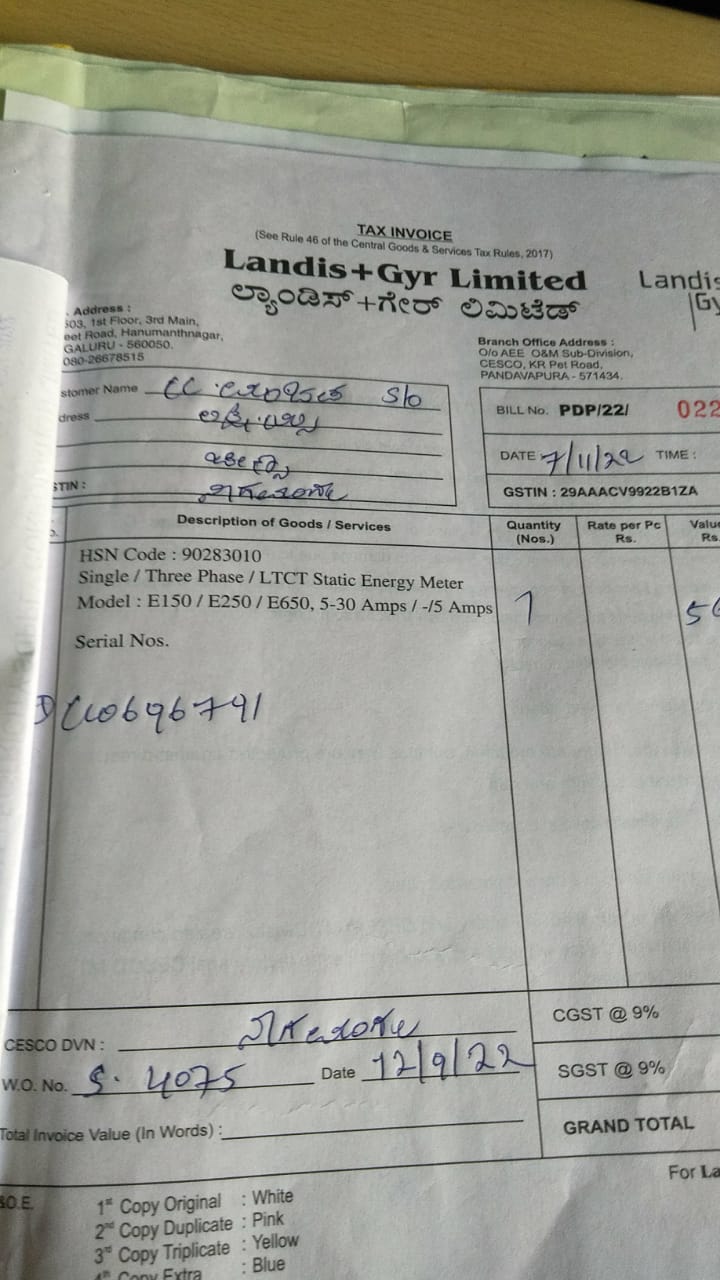 TAX INVOICE
(See Rule 46 of the Central Goods & Services Tax Rules, 2017)
Landis+Gyr Limited
Landis
Gy
ಲ್ಯಾಂಡಿಸ್+ಗೇರ್ ಲಿಮಿಟೆಡ್
. Address :
503, 1st Floor, 3rd Main,
eet Road, Hanumanthnagar,
GALURU - 560050.
080-26678515
Branch Office Address :
O/o AEE O&M Sub-Division,
CESCO, KR Pet Road,
PANDAVAPURA - 571434.
stomer Name S/o
dress
STIN :
BILL No. PDP/22/ 022
DATE 7/11/22 TIME :
GSTIN : 29AAACV9922B1ZA
Description of Goods / Services Quantity (Nos.) Rate per Pc Rs. Value Rs.
HSN Code : 90283010
Single / Three Phase / LTCT Static Energy Meter
Model : E150 / E250 / E650, 5-30 Amps / -/5 Amps 1
Serial Nos.
CESCO DVN :
W.O. No. S. 4075 Date 12/9/22
Total Invoice Value (In Words) :
CGST @ 9%
SGST @ 9%
GRAND TOTAL
For La
&O.E.
1st Copy Original : White
2nd Copy Duplicate : Pink
3rd Copy Triplicate : Yellow
4th Copy Extra : Blue